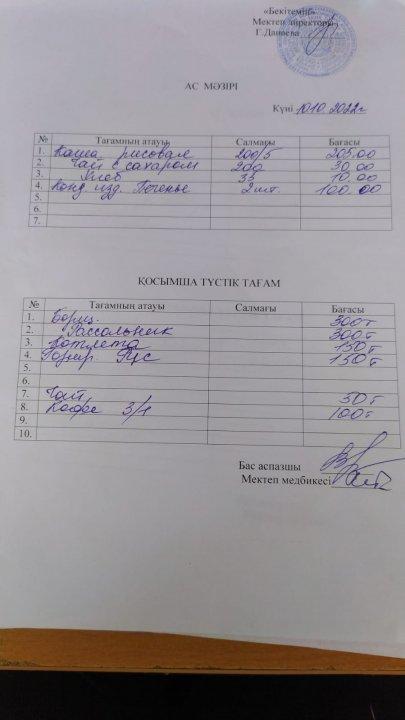 «Бекітемін»
Мектеп директоры
Г.Данаева
АС МӘЗІРІ
Күні 10.10.2022г
№ Тағамның атауы Салмағы Бағасы
1. Каша рисовая 200/5 205.00
2. Чай с сахаром 200 30.00
3. Хлеб 35 10.00
4. Конд изд. Печенье 2 шт. 100.00
5.
6.
7.
ҚОСЫМША ТҮСТІК ТАҒАМ
№ Тағамның атауы Салмағы Бағасы
1. Борщ. 300т
2. Рассольник 300т
3. Котлета 150т
4. Гарнир Рис 150т
5.
6.
7. Чай 50т
8. Кофе 3/1 100т
9.
10.
Бас аспазшы
Мектеп медбикесі